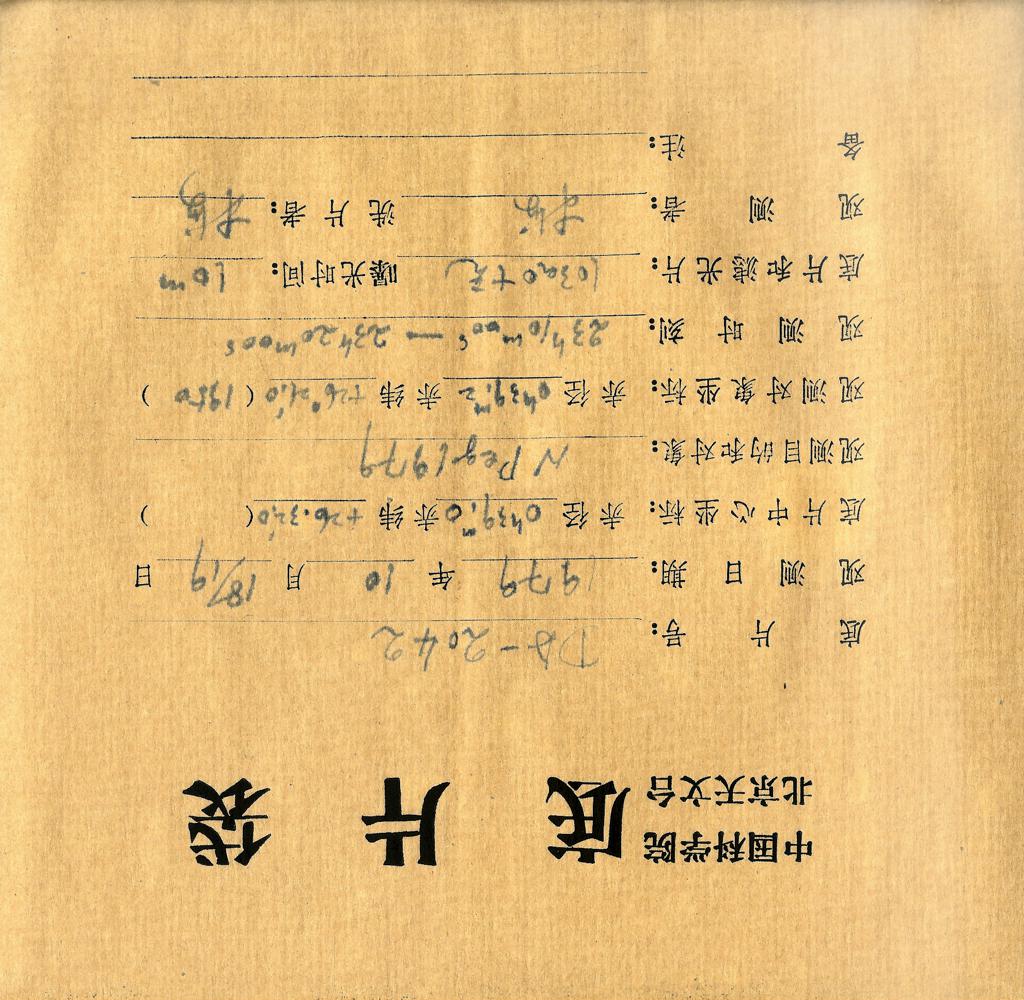 中国科学院
北京天文台 底片袋
底片号: DA-2042
观测日期: 1979年10月18/19日
底片中心坐标: 赤径 0h39m.0 赤纬 +26.32.0 ( )
观测目的和对象: N Peg 1979
观测对象坐标: 赤径 0h39m.2 赤纬 +26°21'.0 (1950)
观测时刻: 23h10m00s — 23h20m00s
底片和滤光片: 103aO+无 曝光时间: 10m
观测者: 洗片者:
备注: